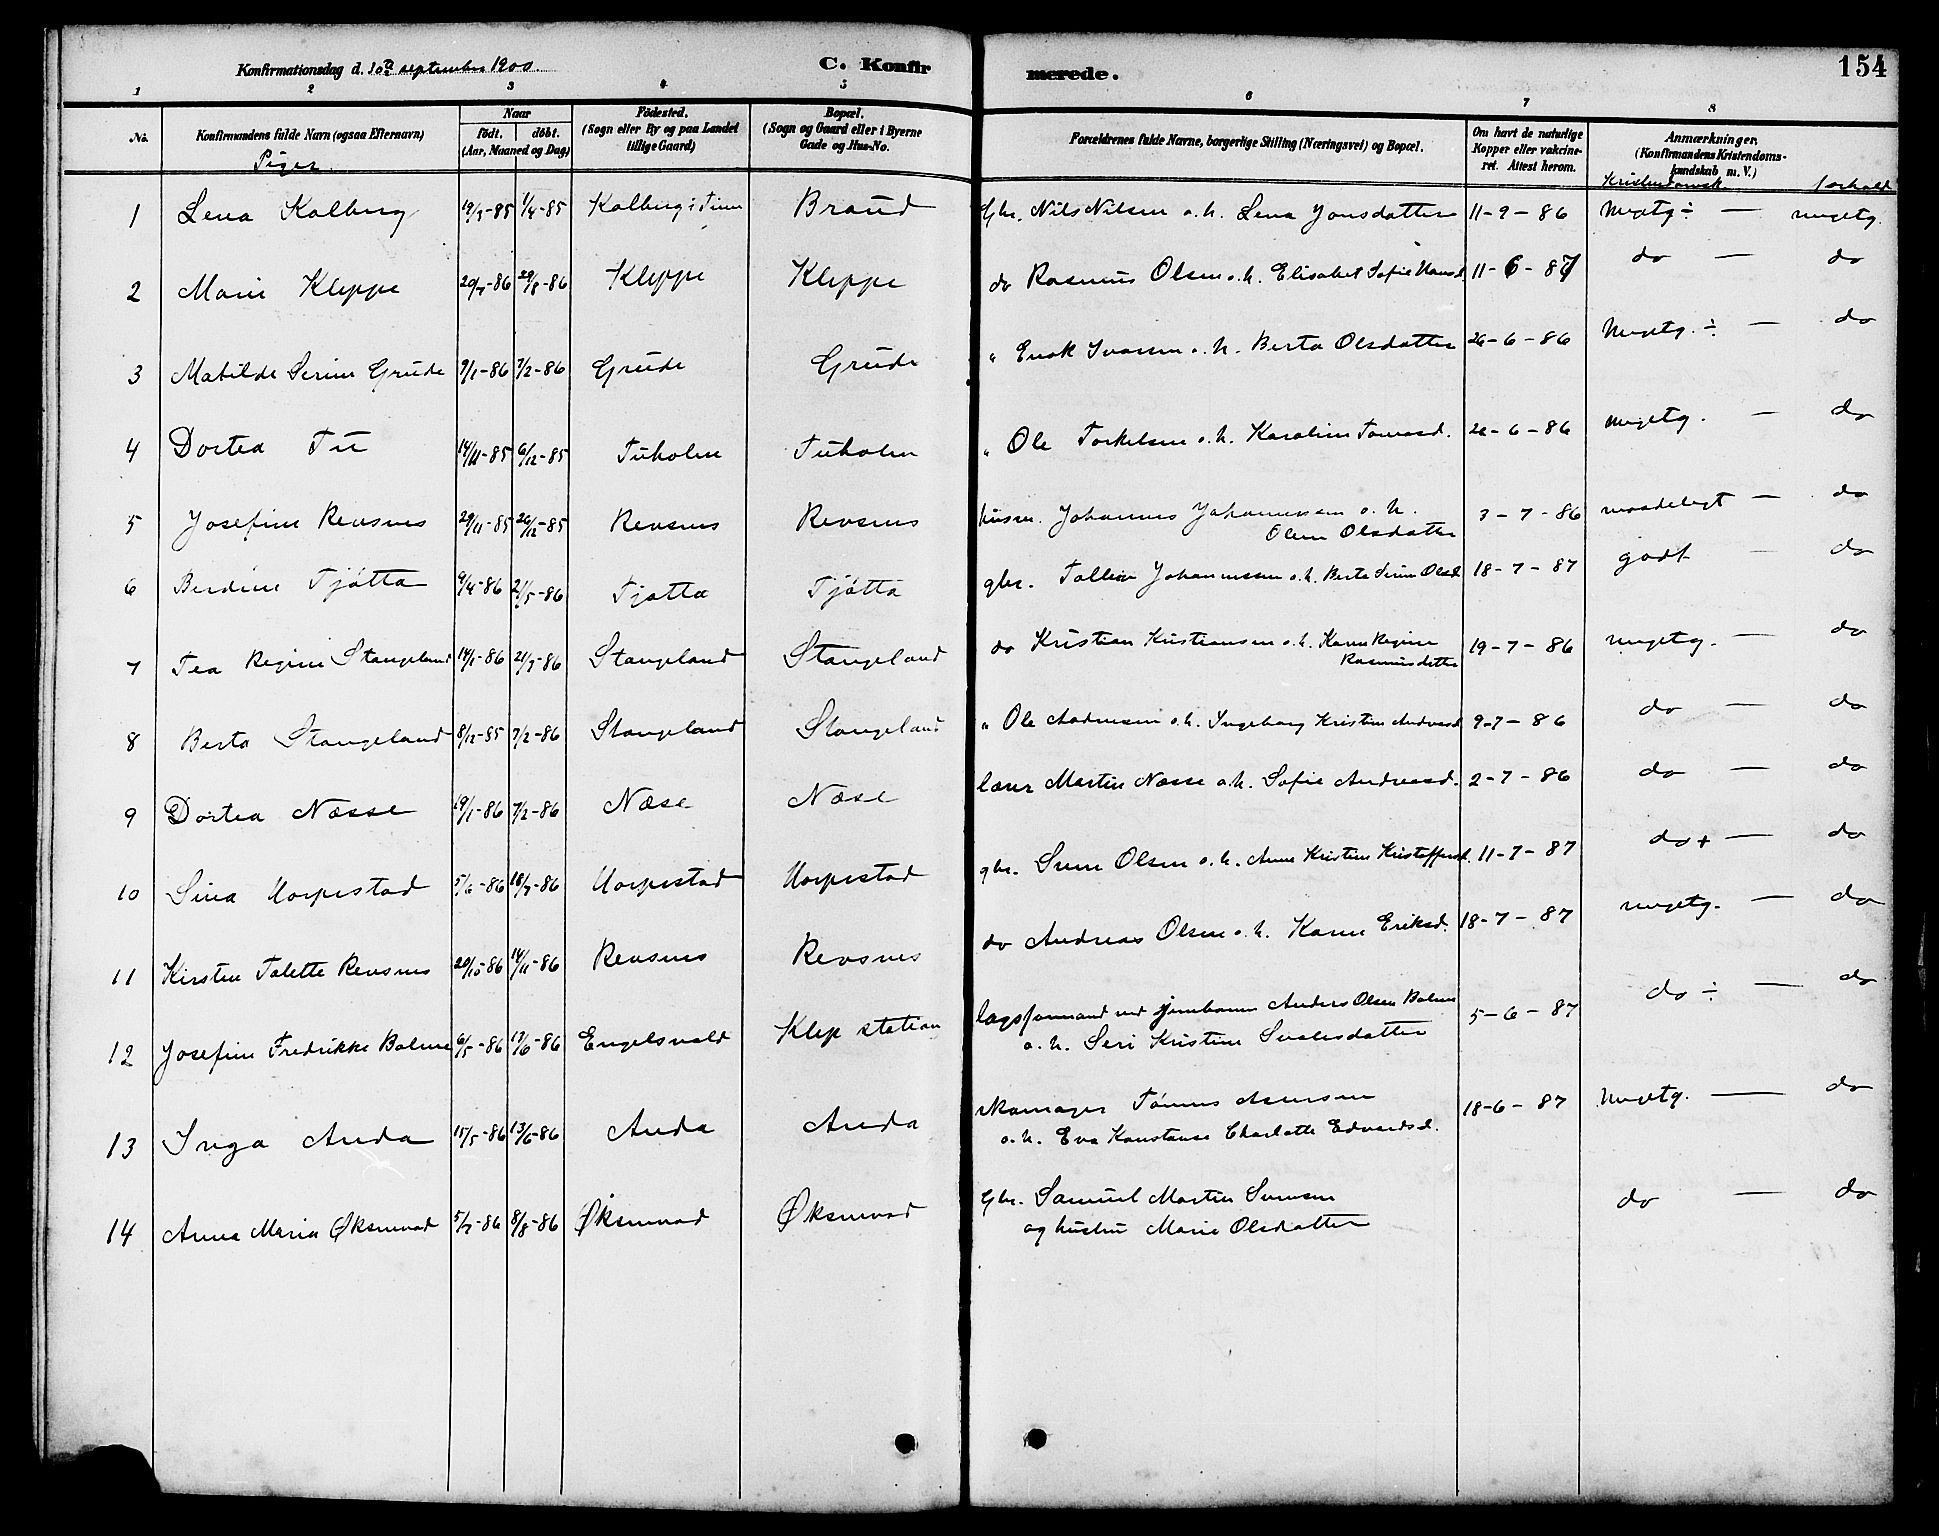 Konfirmationsdag d. 10de september 1900. C. Konfir merede. 154
1 2 3 4 5 6 7 8
No. Konfirmandens fulde Navn (ogsaa Efternavn) Naar født. døbt. (Aar, Maaned og Dag) Fødested. (Sogn eller By og paa Landet tillige Gaard) Bopæl. (Sogn og Gaard eller i Byerne Gade og Hus-No. Forældrenes fulde Navne, borgerlige Stilling (Næringsvei) og Bopæl. Om havt de naturlige Kopper eller vakcineret. Attest herom. Anmærkninger. (Konfirmandens Kristendomskundskab m. V.)
Piger. Kristendomsk. forhold
1 Lena Kalberg 19/3-85 1/4-85 Kalberg i Time Braud Gbr. Nils Nilsen o.h. Lena Jonsdatter 11-9-86 Megetg ÷ — megetg.
2 Marie Kleppe 20/7-86 29/8-86 Kleppe Kleppe do Rasmus Olsen o.h. Elisabet Sofie Hansd. 11-6-87 do — do
3 Matilde Serine Grude 9/1-86 7/2-86 Grude Grude " Enok Ivarsen o.h. Berta Olsdatter 26-6-86 Megetg. ÷ — do
4 Dortea Tu 14/11-85 6/12-85 Tuholen Tuholen " Ole Torkelsen o.h. Karoline Tomasd. 26-6-86 megetg. — do
5 Josefine Revsnes 29/11-85 26/12-85 Revsnes Revsnes husm. Johannes Johannessen o.h.
Olene Olsdatter 3-7-86 maadeligt — do
6 Berdine Tjøtta 9/4-86 2/5-86 Tjøtta Tjøtta gbr. Tollev Johannessen o.h. Berte Serine Olsd. 18-7-87 godt — do
7 Tea Regine Stangeland 14/1-86 21/3-86 Stangeland Stangeland do Kristian Kristiansen o.h. Karen Regine
Rasmusdatter 19-7-86 megetg. — do
8 Berta Stangeland 8/12-85 7/2-86 Stangeland Stangeland " Ole o.h. Ingeborg Kristine Andreasd. 9-7-86 do — do
9 Dortea Næsse 19/1-86 7/2-86 Næse Næse lærer Martin Næsse o.h. Sofie Andreasd. 2-7-86 do — do
10 Sina Horpestad 5/6-86 18/7-86 Horpestad Horpestad gbr. Sven Olsen o.h. Anne Kristine Kristoffersd. 11-7-87 do + — do
11 Kirsten Talette Revsnes 20/10-86 14/11-86 Revsnes Revsnes do Andreas Olsen o.h. Karen Eriksd. 18-7-87 megetg. — do
12 Josefine Fredrikke Bolme 6/5-86 13/6-86 Engelsvold Klep station lagsformand ved jernbanen Anders Olsen Bolme
o.h. Seri Kristine Sivalesdatter 5-6-87 do ÷ — do
13 Inga Anda 15/5-86 13/6-86 Anda Anda skomager Tønnes Asensen
o.h. Eva Konstanse Charlotte Edvardsd. 18-6-87 Megetg. — do
14 Anna Maria Øksnevad 5/7-86 8/8-86 Øksnevad Øksnevad Gbr. Samuel Martin Svensen
og hustru Marie Olsdatter do — do